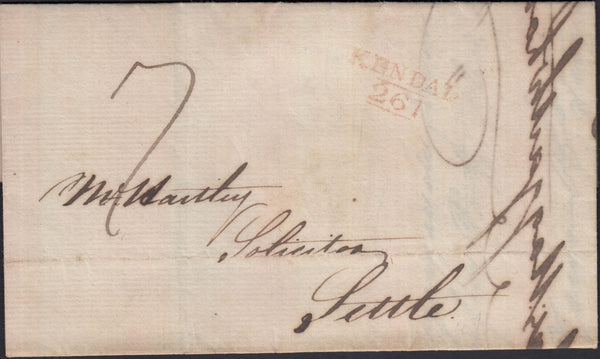 7
KENDAL
261
Mr Hartley
Solicitor
Settle